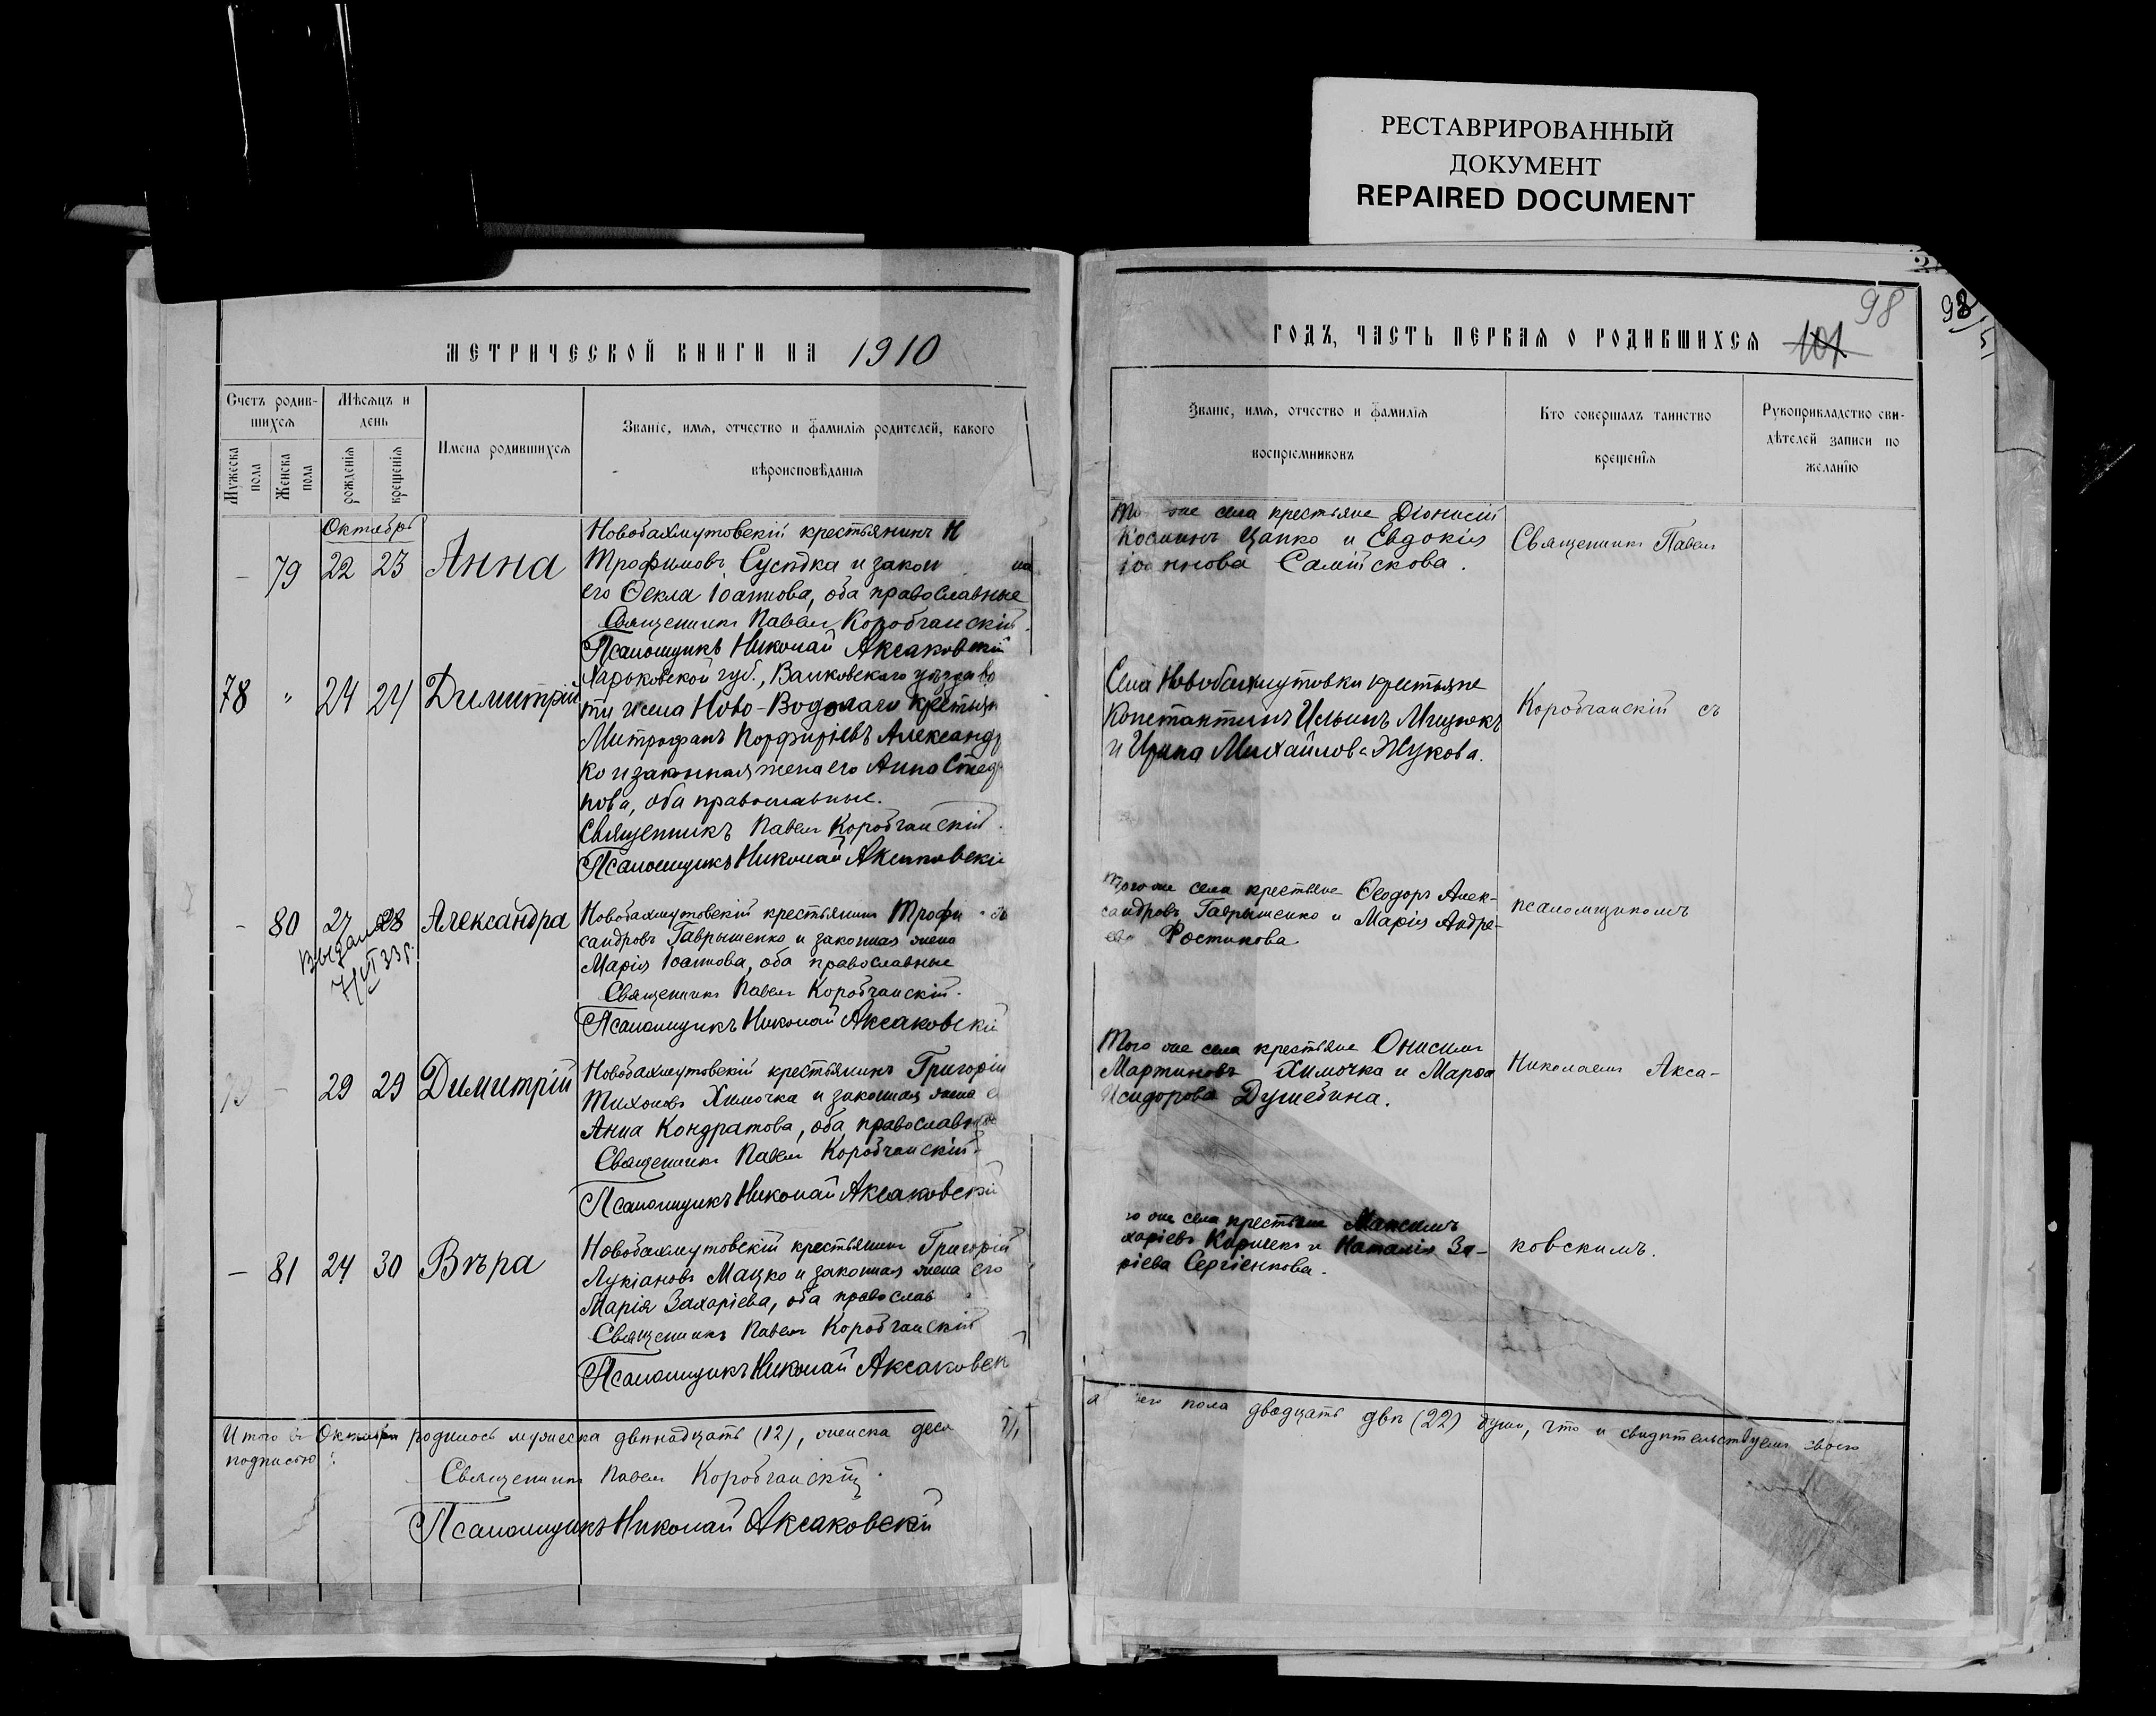 РЕСТАВРИРОВАННЫЙ
ДОКУМЕНТ
REPAIRED DOCUMENT
98
98
МЕТРИЧЕСКОЙ КНИГИ НА 1910
ГОДЪ, ЧАСТЬ ПЕРВАЯ О РОДИВШИХСЯ 101
Счетъ родив-
шихся
Мужеска пола
Женска пола
Мѣсяцъ и
день
рожденія
крещенія
Имена родившихся
Званіе, имя, отчество и фамилія родителей, какого
вѣроисповѣданія
Званіе, имя, отчество и фамилія
воспріемниковъ
Кто совершалъ таинство
крещенія
Рукоприкладство сви-
дѣтелей записи по
желанію
Октябрь
– 79 22 23 Анна
Новобахмутовскій крестьянинъ Н
Трофимовъ Сусѣдка и закон на
его Ѳекла Іоаннова, оба православные
Священникъ Павелъ Коробчанскій.
Псаломщикъ Николай Аксаковскій
же села крестьяне Діонисій
Косминъ Цапко и Евдокія
Іоаннова Самійскова.
Священникъ Павелъ
78 " 24 24 Димитрій
Харьковской губ., Валковского уѣзда во
сти и села Ново-Водолаги крестьян
Митрофанъ Порфирьевъ Александр
ко и законная жена его Анна Стефа
нова, оба православные.
Священникъ Павелъ Коробчанскій.
Псаломщикъ Николай Аксаковскій
Села Новобахмутовки крестьяне
Константинъ Ильинъ Мицюкъ
и Ирина Михайлова Жукова.
Коробчанскій съ
– 80 27 28 Александра
Выдана
7/VI 33 г.
Новобахмутовскій крестьянинъ Трофи
сандровъ Гаврышенко и законная жена
Марія Іоаннова, оба православные
Священникъ Павелъ Коробчанскій.
Псаломщикъ Николай Аксаковскій
Того же села крестьяне Ѳеодоръ Алек-
сандровъ Гаврышенко и Марія Андре-
ева Ростикова.
псаломщикомъ
79 – 29 29 Димитрій
Новобахмутовскій крестьянинъ Григорій
Тихоновъ Химочка и законная жена е
Анна Кондратова, оба православные
Священникъ Павелъ Коробчанскій.
Псаломщикъ Николай Аксаковскій
Того же села крестьяне Онисимъ
Мартиновъ Химочка и Марѳа
Исидорова Душебина.
Николаемъ Акса-
– 81 24 30 Вѣра
Новобахмутовскій крестьянинъ Григорій
Лукіановъ Мацко и законная жена его
Марія Захаріева, оба православ
Священникъ Павелъ Коробчанскій
Псаломщикъ Николай Аксаковск
го же села крестьяне Максимъ
харіевъ и Наталія За-
ріева Сергіенкова.
ковскимъ.
Итого въ Октябрѣ родилось мужеска двѣнадцать (12), женска деся
его пола двадцать двѣ (22) души, что и свидѣтельствуемъ своею
подписью:
Священникъ Павелъ Коробчанскій.
Псаломщикъ Николай Аксаковскій